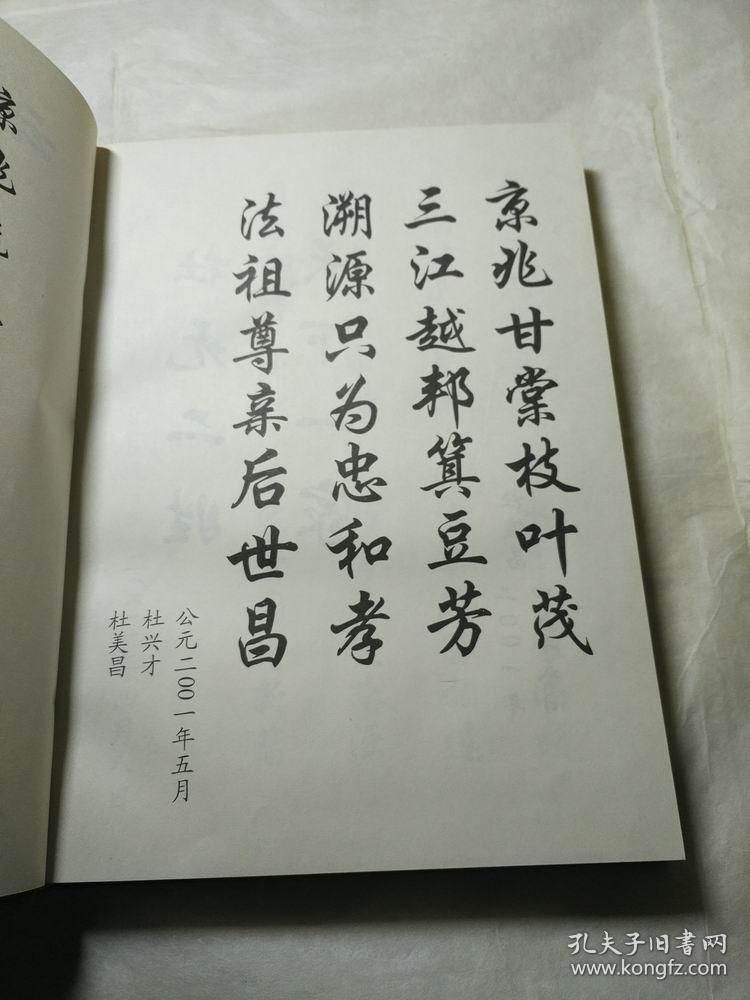 京兆甘棠枝叶茂
三江越邦箕豆芳
溯源只为忠和孝
法祖尊亲后世昌
公元二〇〇一年五月
杜兴才
杜美昌
孔夫子旧書网
www.kongfz.com